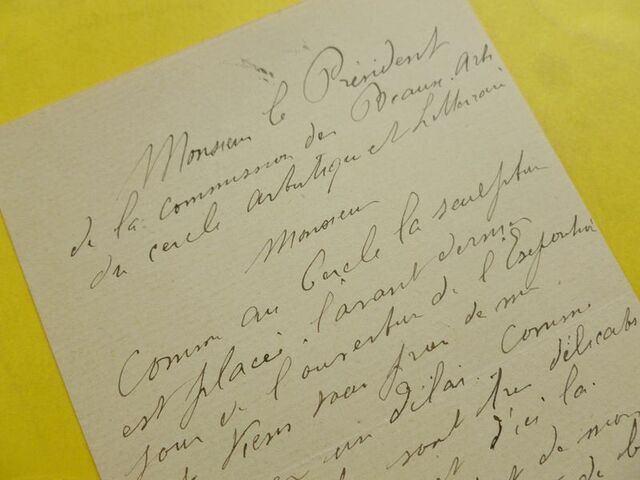 Monsieur le Président
de la commission des Beaux-Arts
du cercle artistique et littéraire
Monsieur
Comme au Cercle la sculpture
est placée l'avant dernier
jour de l'ouverture de l'Exposition
je viens vous prier de me
un délai. Comme
sont très délicats
d'ici la.
de mon
de